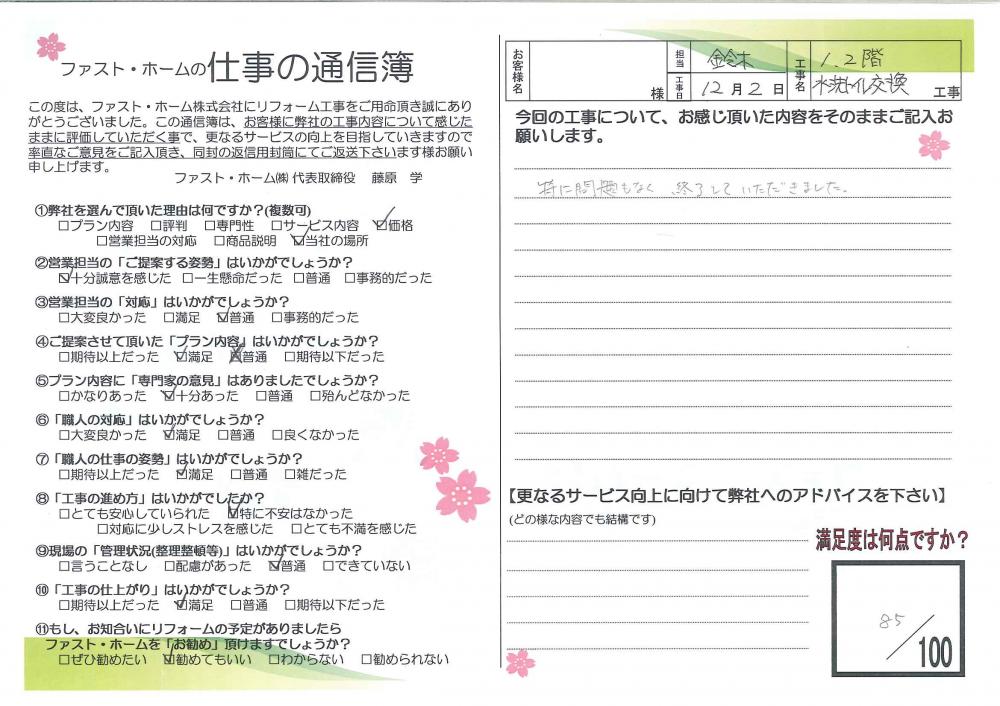 ファスト・ホームの仕事の通信簿
この度は、ファスト・ホーム株式会社にリフォーム工事をご用命頂き誠にあり
がとうございました。この通信簿は、お客様に弊社の工事内容について感じた
ままに評価していただく事で、更なるサービスの向上を目指していきますので
率直なご意見をご記入頂き、同封の返信用封筒にてご返送下さいます様お願い
申し上げます。
ファスト・ホーム㈱ 代表取締役 藤原 学
①弊社を選んで頂いた理由は何ですか?(複数可)
□プラン内容 □評判 □専門性 □サービス内容 ☑価格
□営業担当の対応 □商品説明 ☑当社の場所
②営業担当の「ご提案する姿勢」はいかがでしょうか?
☑十分誠意を感じた □一生懸命だった □普通 □事務的だった
③営業担当の「対応」はいかがでしょうか?
□大変良かった □満足 ☑普通 □事務的だった
④ご提案させて頂いた「プラン内容」はいかがでしょうか?
□期待以上だった ☑満足 ☒普通 □期待以下だった
⑤プラン内容に「専門家の意見」はありましたでしょうか?
□かなりあった ☑十分あった □普通 □殆んどなかった
⑥「職人の対応」はいかがでしょうか?
□大変良かった ☑満足 □普通 □良くなかった
⑦「職人の仕事の姿勢」はいかがでしょうか?
□期待以上だった ☑満足 □普通 □雑だった
⑧「工事の進め方」はいかがでしたか?
□とても安心していられた ☑特に不安はなかった
□対応に少しストレスを感じた □とても不満を感じた
⑨現場の「管理状況(整理整頓等)」はいかがでしょうか?
□言うことなし □配慮があった ☑普通 □できていない
⑩「工事の仕上がり」はいかがでしょうか?
□期待以上だった ☑満足 □普通 □期待以下だった
⑪もし、お知合いにリフォームの予定がありましたら
ファスト・ホームを「お勧め」頂けますでしょうか?
□ぜひ勧めたい ☑勧めてもいい □わからない □勧められない
お客様名 様 担当 鈴木 工事日 12月2日 工事名 1.2階 水洗トイレ交換 工事
今回の工事について、お感じ頂いた内容をそのままご記入お
願いします。
特に問題もなく 終了していただきました。
【更なるサービス向上に向けて弊社へのアドバイスを下さい】
(どの様な内容でも結構です)
満足度は何点ですか?
85/100